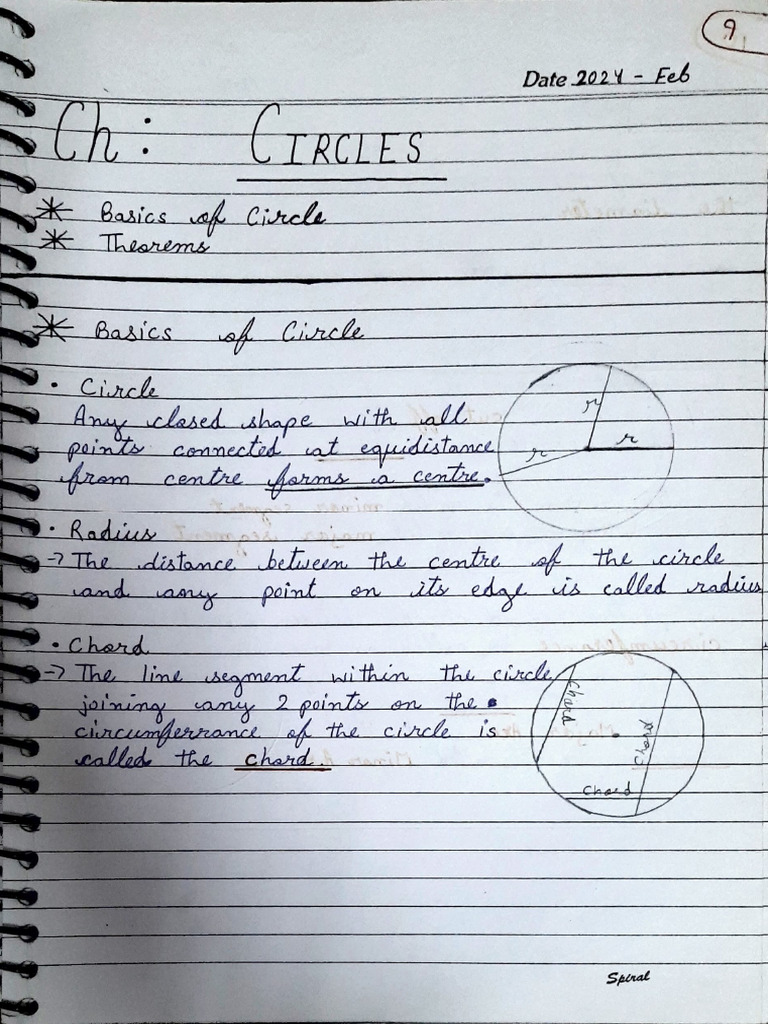 9
Date 2024 - Feb
Ch: CIRCLES
* Basics of Circle
* Theorems
* Basics of Circle
• Circle
Any closed shape with all
points connected at equidistance
from centre forms a centre.
r
r
r
• Radius
→ The distance between the centre of the circle
and any point on its edge is called radius
• Chord
→ The line segment within the circle
joining any 2 points on the
circumferrance of the circle is
called the chord.
chord
chord
chord
Spiral